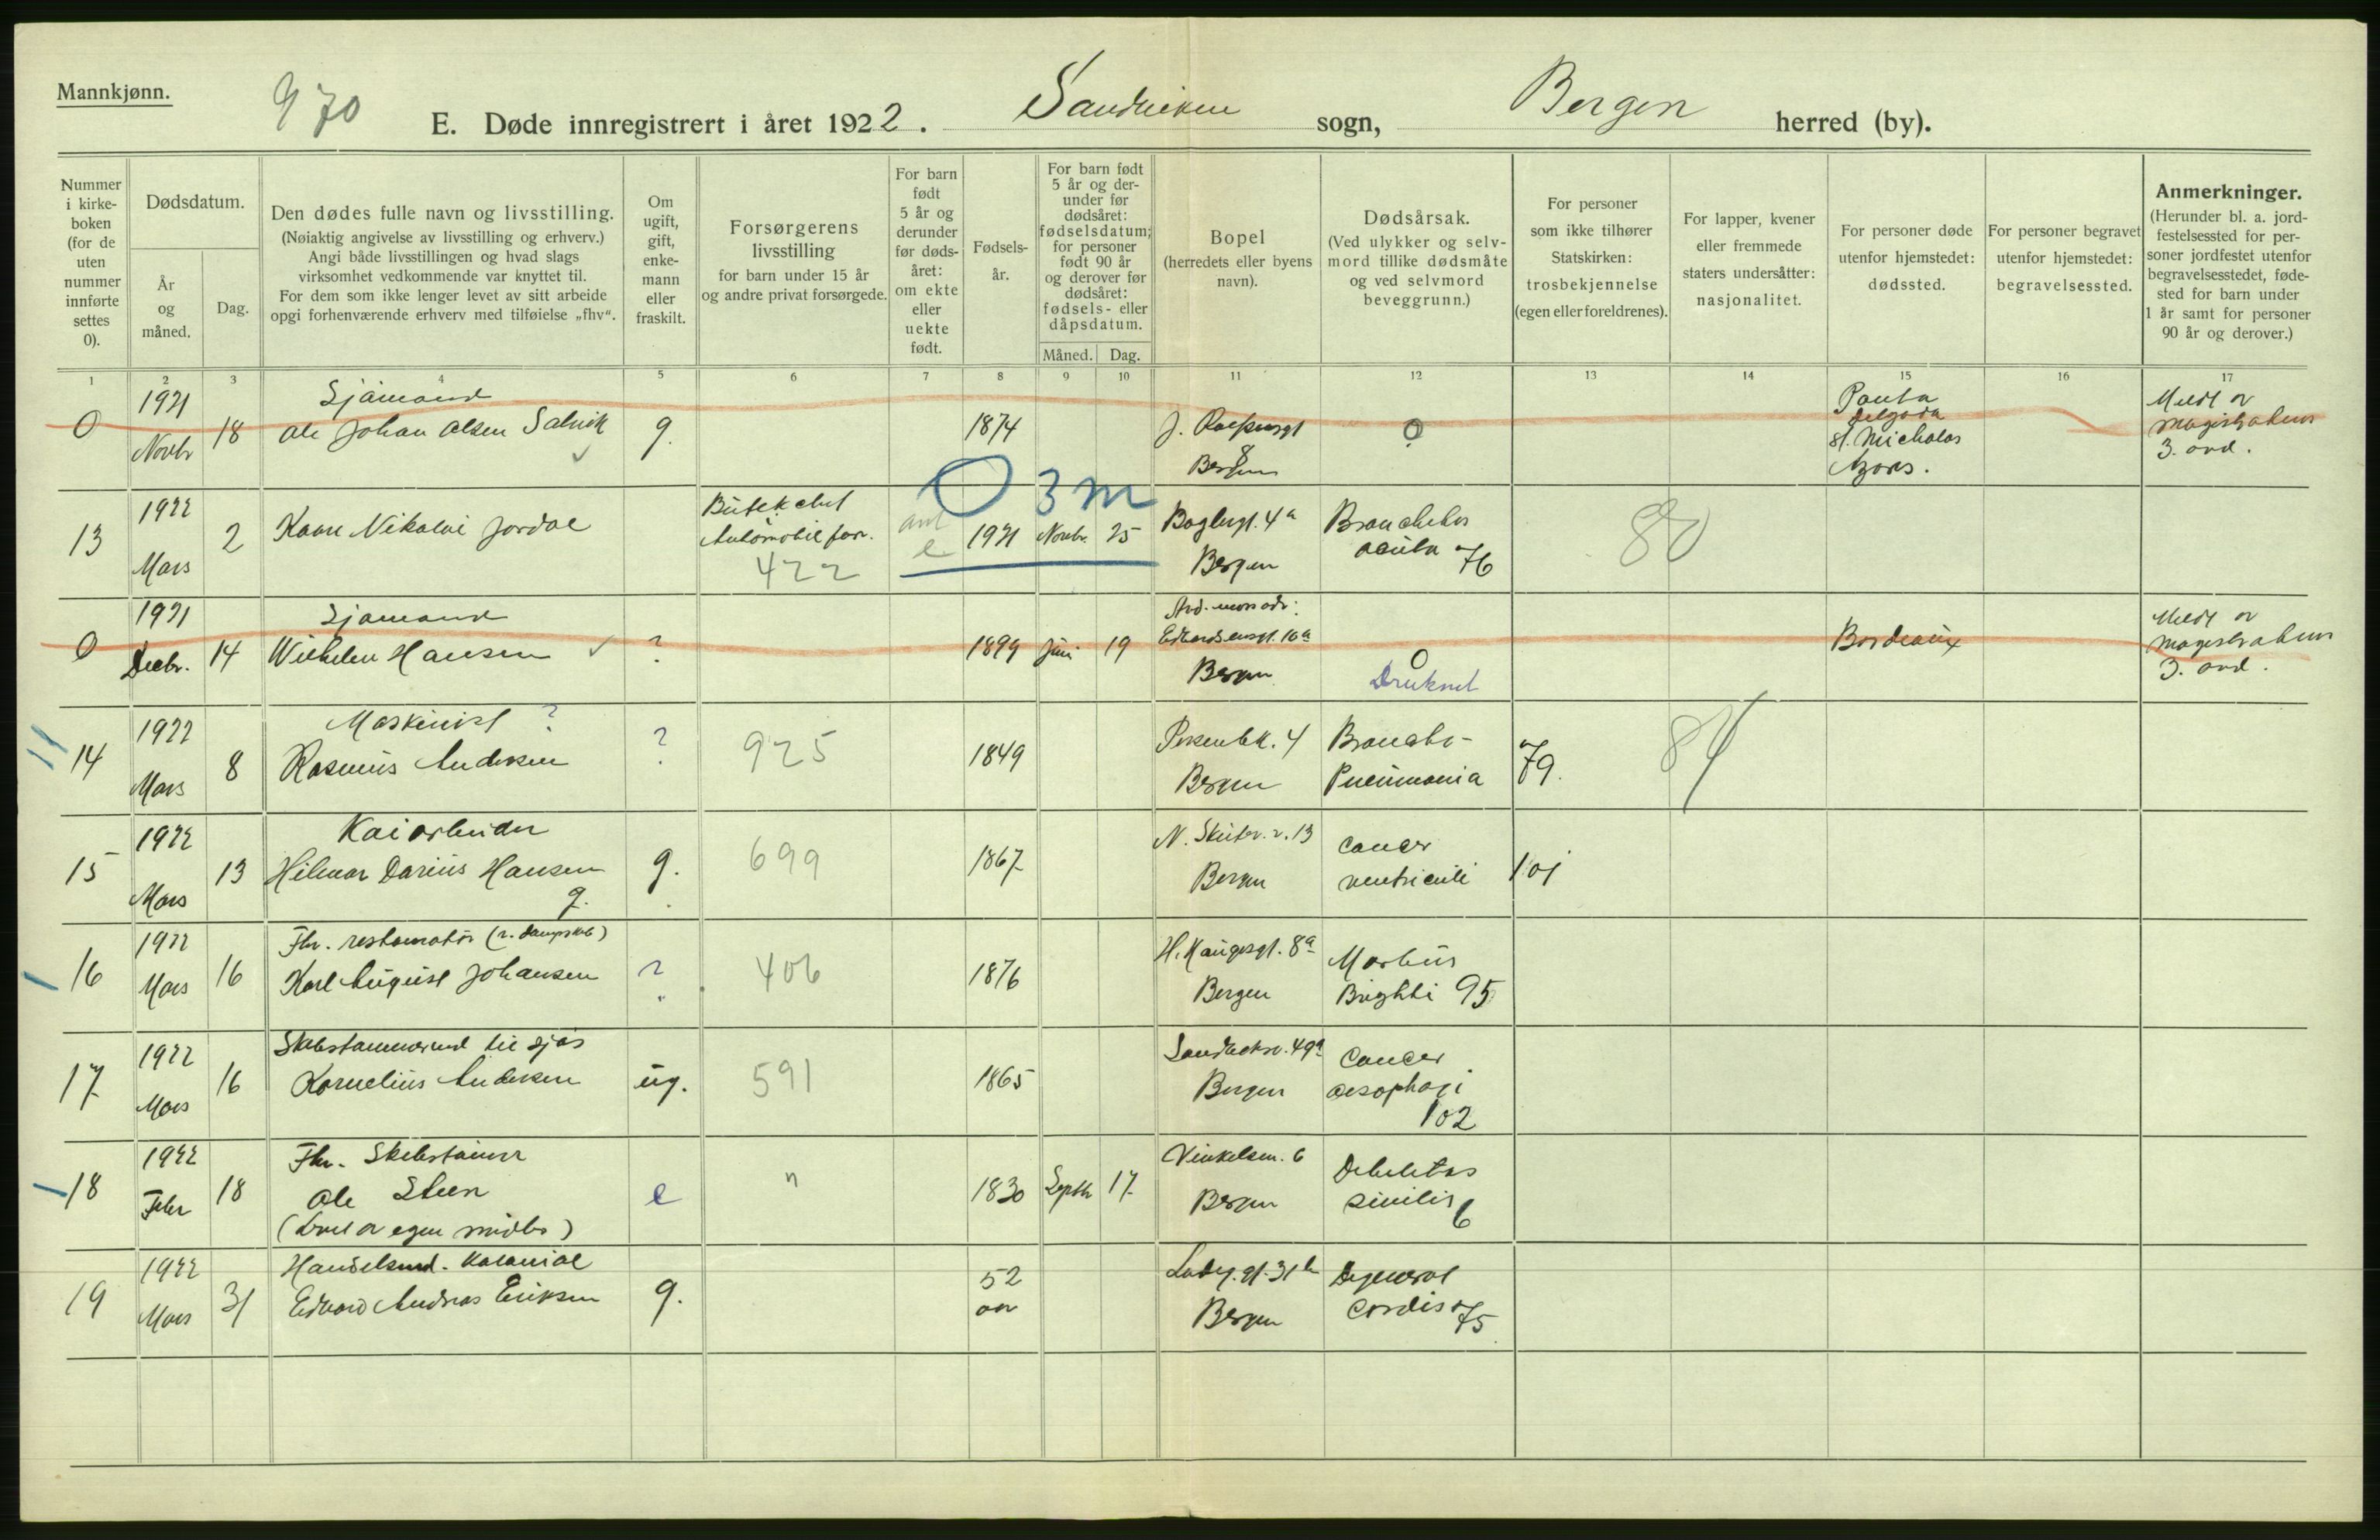 Mannkjønn.
970
E. Døde innregistrert i året 1922. Sandviken sogn, Bergen herred (by).
Nummer i kirkeboken (for de uten nummer innførte settes 0).
Dødsdatum.
År og måned.
Dag.
Den dødes fulle navn og livsstilling.
(Nøiaktig angivelse av livsstilling og erhverv.)
Angi både livsstillingen og hvad slags
virksomhet vedkommende var knyttet til.
For dem som ikke lenger levet av sitt arbeide
opgi forhenværende erhverv med tilføielse „fhv“.
Om ugift, gift, enkemann eller fraskilt.
Forsørgerens livsstilling
for barn under 15 år
og andre privat forsørgede.
For barn født 5 år og derunder før dødsåret: om ekte eller uekte født.
Fødselsår.
For barn født 5 år og derunder før dødsåret: fødselsdatum; for personer født 90 år og derover før dødsåret: fødsels- eller dåpsdatum.
Måned. Dag.
Bopel
(herredets eller byens navn).
Dødsårsak.
(Ved ulykker og selvmord tillike dødsmåte og ved selvmord beveggrunn.)
For personer som ikke tilhører Statskirken: trosbekjennelse (egen eller foreldrenes).
For lapper, kvener eller fremmede staters undersåtter: nasjonalitet.
For personer døde utenfor hjemstedet: dødssted.
For personer begravet utenfor hjemstedet: begravelsessted.
Anmerkninger.
(Herunder bl. a. jordfestelsessted for personer jordfestet utenfor begravelsesstedet, fødested for barn under 1 år samt for personer 90 år og derover.)
1 2 3 4 5 6 7 8 9 10 11 12 13 14 15 16 17
0 1921 Novbr 18 Sjømand
Ole Johan Olsen Salvik g. 1874
Bergen 0
St. Micholas
3. avd.
0 3 m
13 1922 Mars 2 Kaare Nikolai Jordal
422 e 1921 Novbr. 25 Baglergt. 4a
Bergen Bronchitis
acuta 76 80
0 1921 Decbr. 14 Sjømand
Wilhelm Hansen ? 1899 Juni 19 Edvardsensgt. 16a
Bergen 0
Druknet Bordeaux
3. avd.
14 1922 Mars 8 Maskinist ?
Rasmus Andersen ? 925 1849
Bergen Broncho-
Pneumonia 79. 84
15 1922 Mars 13 Kaiarbeider
Hilmar Darius Hansen g. 699 1867 N. Skutev. v. 13
Bergen Cancer
ventriculi 101
16 1922 Mars 16 Fhv. restauratør (v. dampskib)
Karl August Johansen ? 406 1876 H. Haugesgt. 8a
Bergen Morbus
Brightii 95
17 1922 Mars 16 Skibstømmermd til sjøs
Kornelius Andersen ug. 591 1865 Sandviksv. 49a
Bergen Cancer
oesophagi
102
18 1922 Febr 18 Fhv. Skibstømmr
Ole Steen
(Levet av egne midler) e " 1830 Septbr 17 Vinkelsm. 6
Bergen Debilitas
senilis 6
19 1922 Mars 31 Handelsmd. Kolonial
Edvard Andreas Eriksen g. 52
aar Ladeg. gt. 31b
Bergen Degenerat
Cordis 75